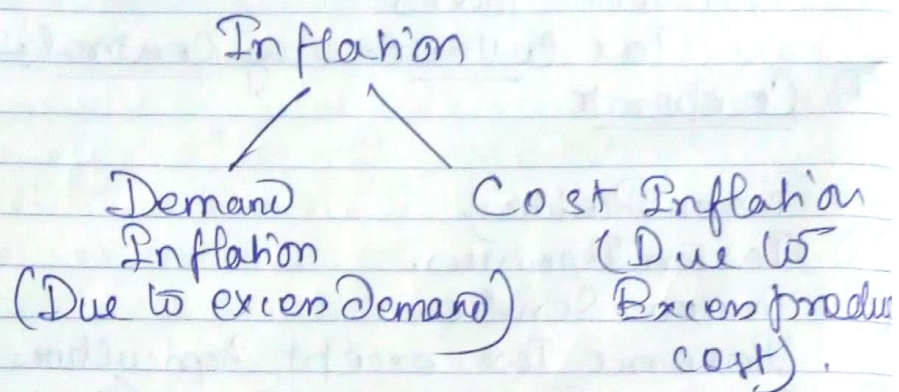 Inflation
Demand
Inflation
(Due to excess Demand)
Cost Inflation
(Due to
Excess produc
cost).